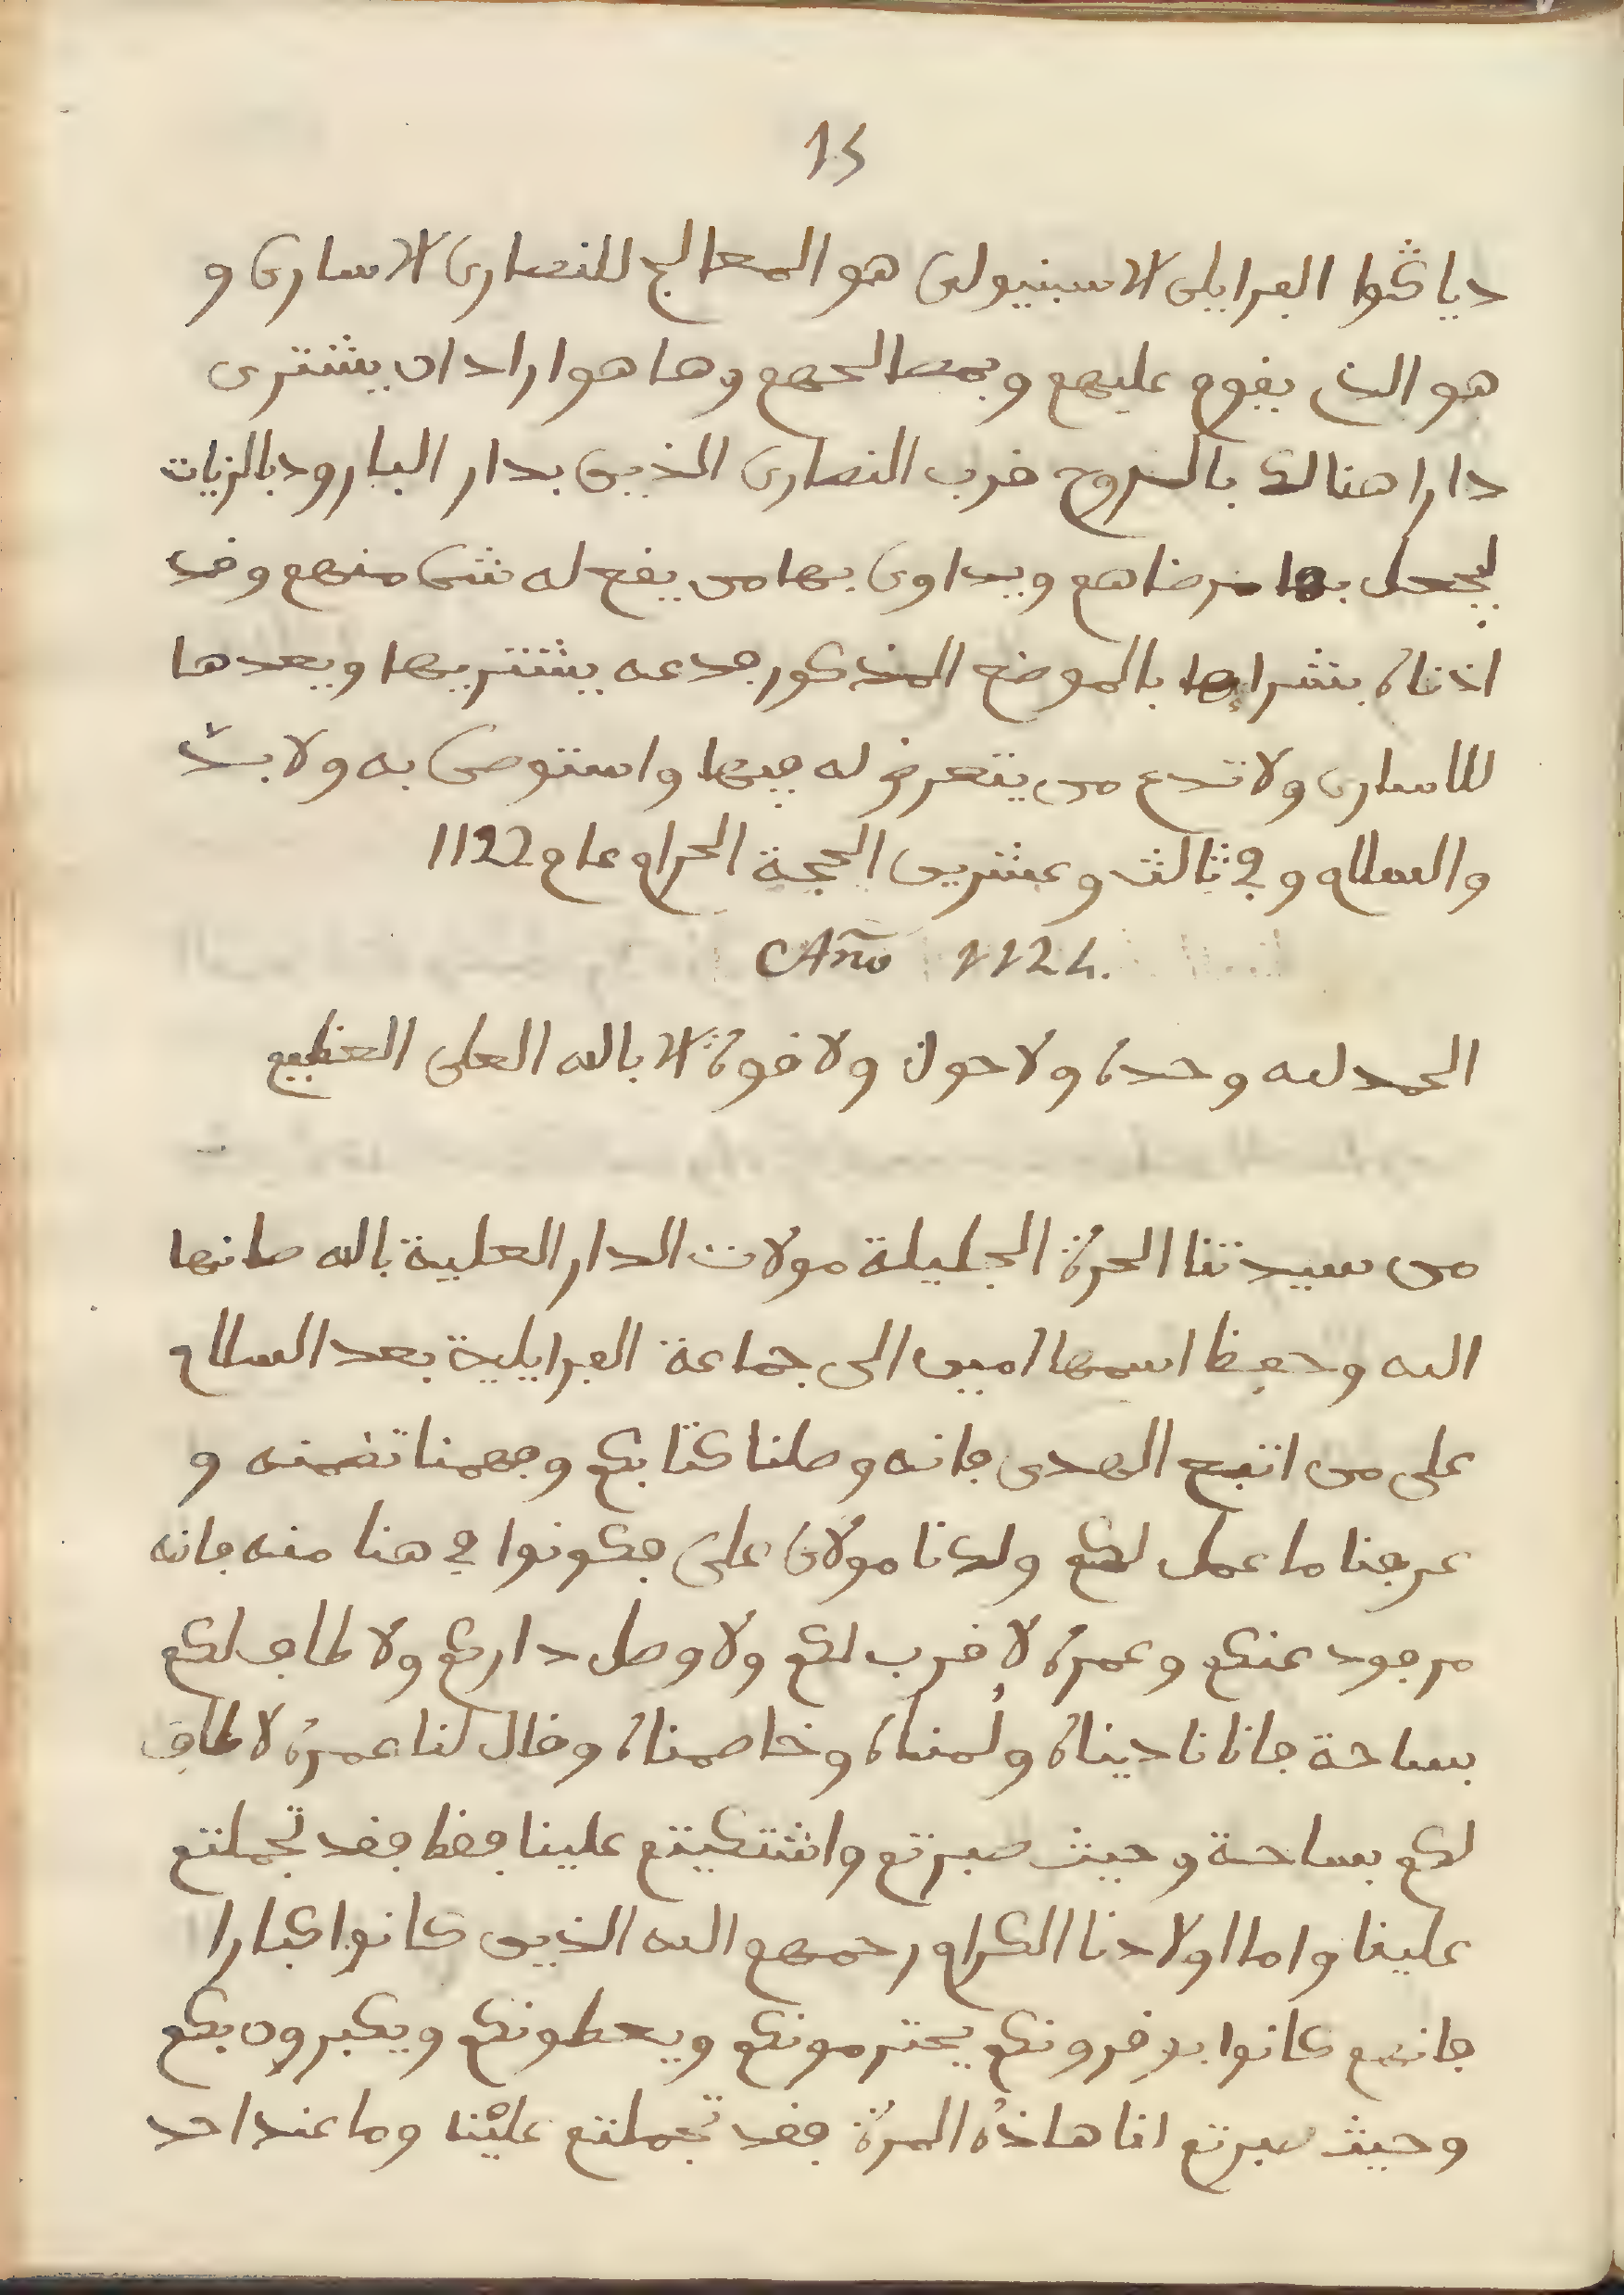 13
دياڨوا الفرايلي الاسبنيولي هو المعالج للنصارى الاسارى و
هو الذي يقوم عليهم وبمصالحهم وها هو اراد ان يشترى
دارا هنالك بالسروج قرب النصارى الذين بدار البارود بالزيات
ليجعل بها مرضاهم ويداوى بها من يقع له شي منهم وقد
اذناه بشرايها بالموضع المذكور فدعه يشتريها ويعدها
للاسارى ولا تدع من يتعرض له فيها واستوصى به ولا بد
والسلام وفي ثالث وعشرين الحجة الحرام عام 1122
Año 1124.
الحمد لله وحده ولا حول ولا قوة الا بالله العلى العظيم
من سيدتنا الحرة الجليلة مولات الدار العلية بالله صانها
الله وحفظ اسمها امين الى جماعة الفرايلية بعد السلام
على من اتبع الهدى فانه وصلنا كتابكم وفهمنا تضمنه و
عرفنا ما عمل لكم ولدنا مولاي على فكونوا في هنا منه فانه
مرفود عنكم وعمره لا قرب لكم ولا وصل داركم ولا طاف لكم
بساحة فانا ناديناه ولُمناه وخاصمناه وقال لنا عمره لا طاف
لكم بساحة وحيث صبرتم واشتكيتم علينا فقط فقد تجملتم
علينا واما اولادنا الكرام رحمهم الله الذين كانوا كبارا
فانهم كانوا يوقرونكم يحترمونكم ويعطونكم ويكبرون بكم
وحيث صبرتم انا هاذه المرة فقد تجملتم علينا وما عند احد